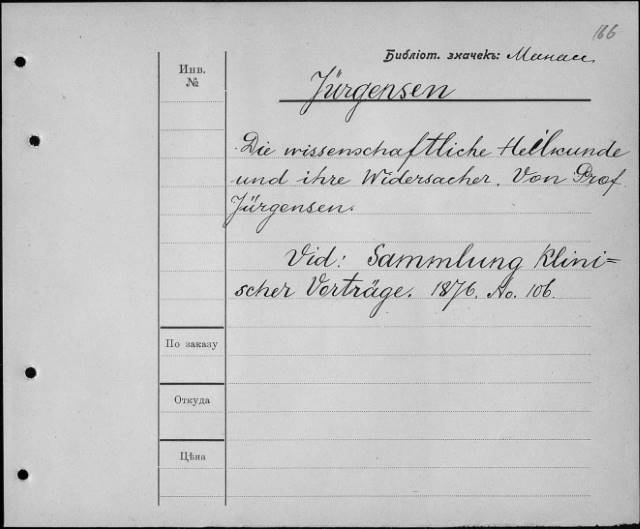 166
Библіот. значекъ: Манасе
Инв.
№
Jürgensen
Die wissenschaftliche Heilkunde
und ihre Widersacher. Von Prof.
Jürgensen.
Vid: Sammlung klini=
scher Vorträge. 1876. No. 106.
По заказу
Откуда
Цѣна